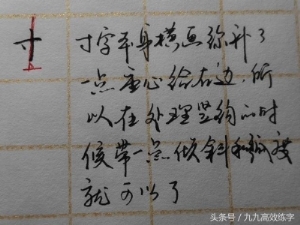 寸 寸字本身横画弥补了
一点重心给右边，所
以在处理竖钩的时
候带一点倾斜和弧度
就可以了
头条号／九九高效练字